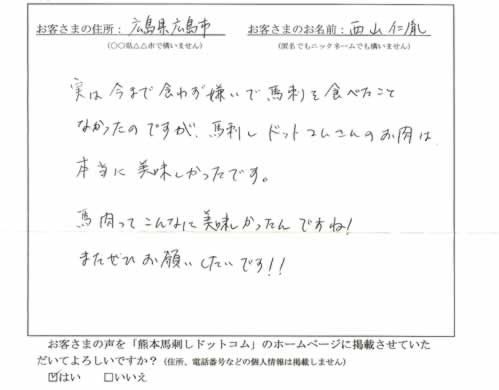 お客さまの住所： 広島県広島市 お客さまのお名前： 西山仁胤
（〇〇県△△市で構いません） （匿名でもニックネームでも構いません）
実は今まで食わず嫌いで馬刺を食べたこと
なかったのですが、馬刺しドットコムさんのお肉は
本当に美味しかったです。
馬肉ってこんなに美味しかったんですね!
またぜひお願いしたいです!!
お客さまの声を「熊本馬刺しドットコム」のホームページに掲載させていた
だいてよろしいですか？（住所、電話番号などの個人情報は掲載しません）
☑はい □いいえ